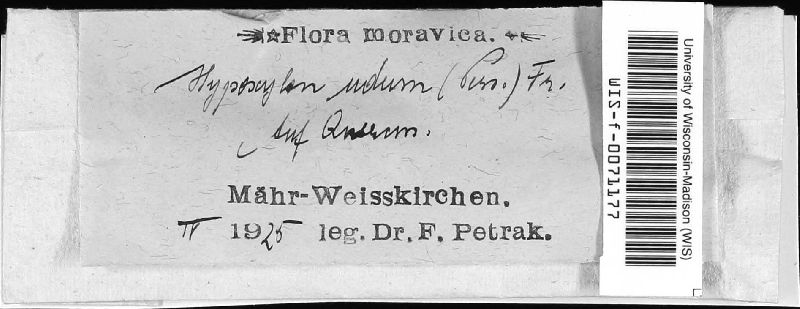 Flora moravica.
Hypoxylon udum (Pers.) Fr.
Auf Quercus.
Mähr-Weisskirchen.
IV 1925 leg. Dr. F. Petrak.
University of Wisconsin-Madison (WIS)
WIS-f-0071177